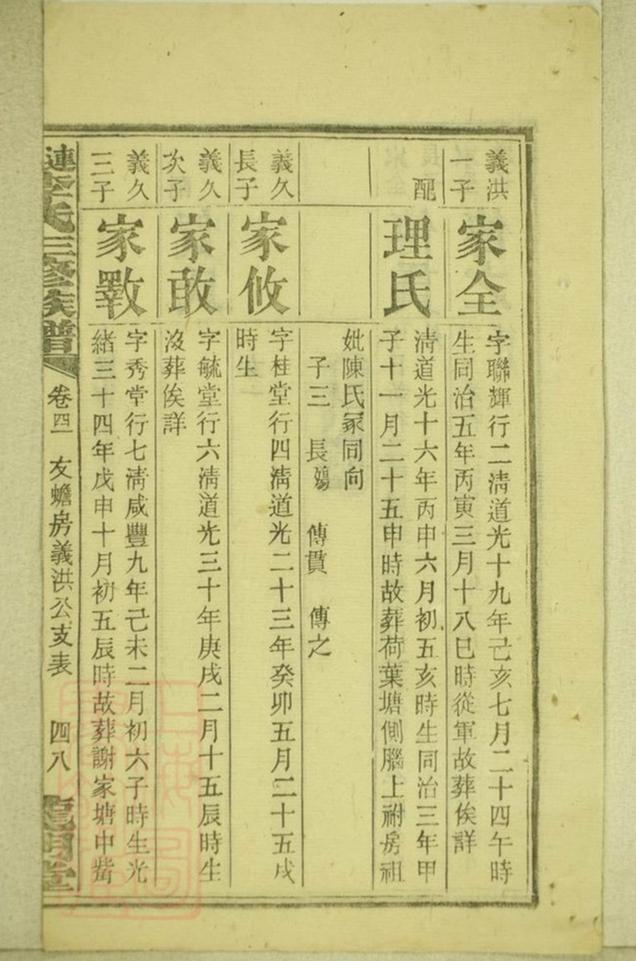 義洪
一子
家全
字聯輝行二淸道光十九年己亥七月二十四午時
生同治五年丙寅三月十八巳時從軍故葬俟詳
配
理氏
淸道光十六年丙申六月初五亥時生同治三年甲
子十一月二十五申時故葬荷葉塘側腦上祔房祖
妣陳氏冢同向
子三 長殤 傳貫 傳之
義久
長子
家攸
字桂堂行四淸道光二十三年癸卯五月二十五戌
時生
義久
次子
家敢
字毓堂行六淸道光三十年庚戌二月十五辰時生
沒葬俟詳
義久
三子
家斁
字秀堂行七淸咸豐九年己未二月初六子時生光
緖三十四年戊申十月初五辰時故葬謝家塘中嘴
漣李氏三修族譜
卷四一 友蟾房義洪公支表 四八
龍門堂